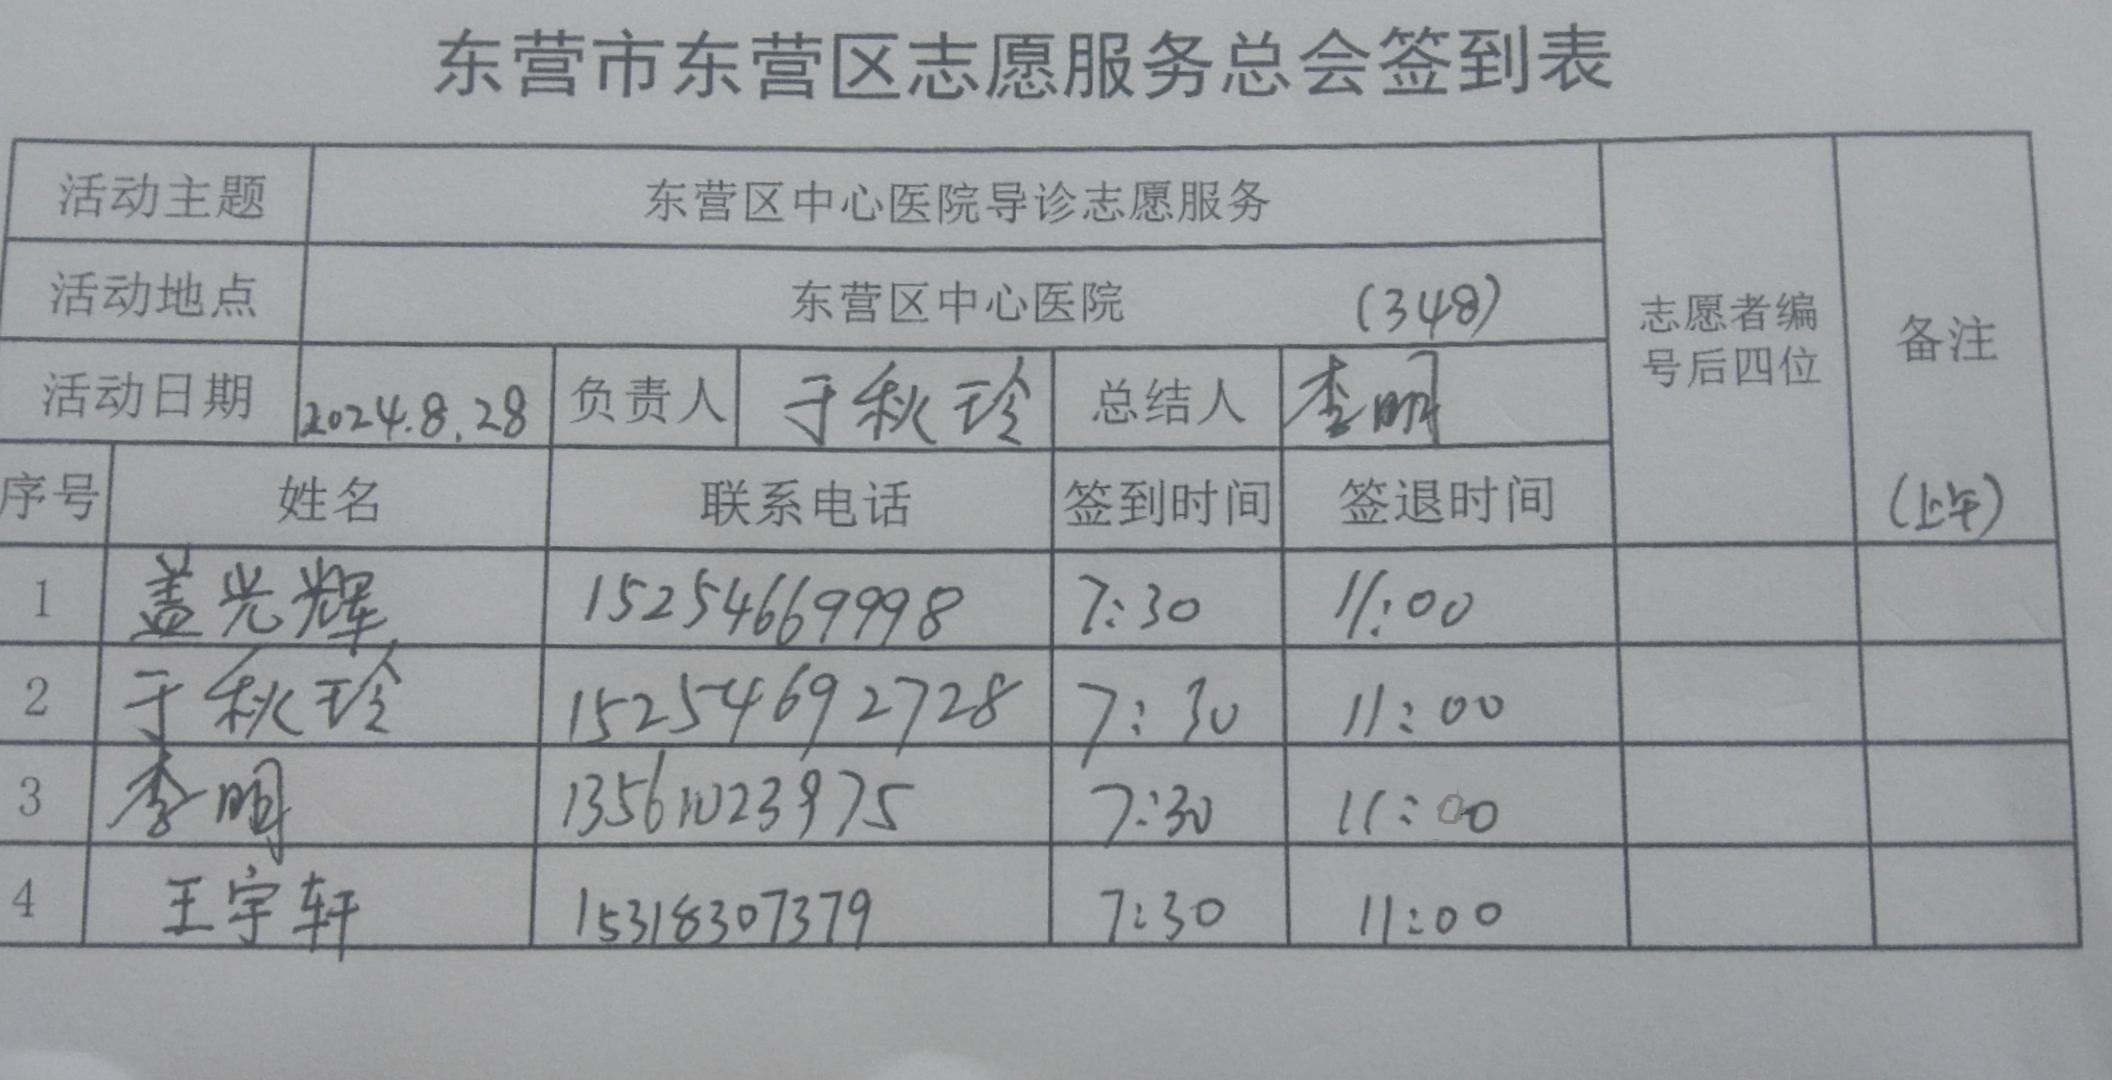 东营市东营区志愿服务总会签到表
活动主题 东营区中心医院导诊志愿服务
活动地点 东营区中心医院 (348)
志愿者编
号后四位
备注
活动日期 2024.8.28 负责人 于秋玲 总结人 李明
序号 姓名 联系电话 签到时间 签退时间 (上午)
1 盖光辉 15254669998 7:30 11:00
2 于秋玲 15254692728 7:30 11:00
3 李明 13561023975 7:30 11:00
4 王宇轩 15318307379 7:30 11:00